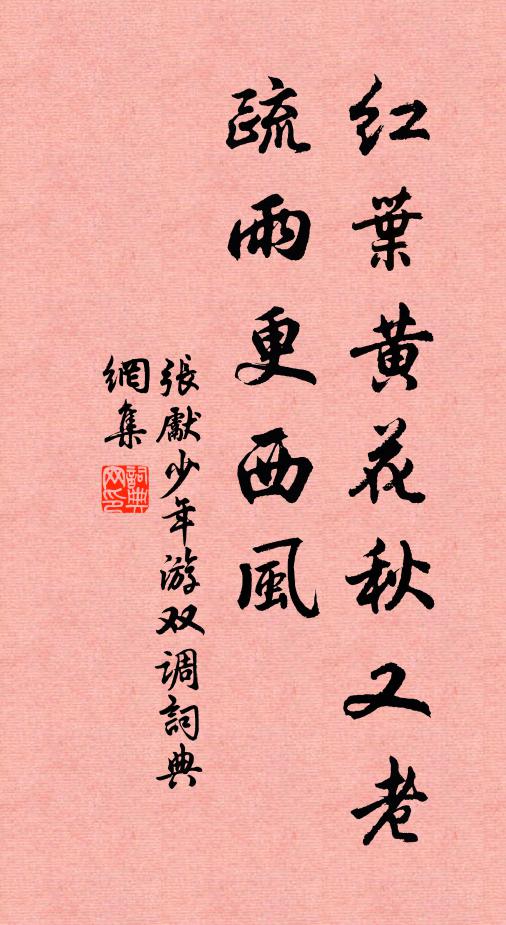 红葉黄花秋又老
疏雨更西風
張獻少年游双调詞典
網集
詞典
网印